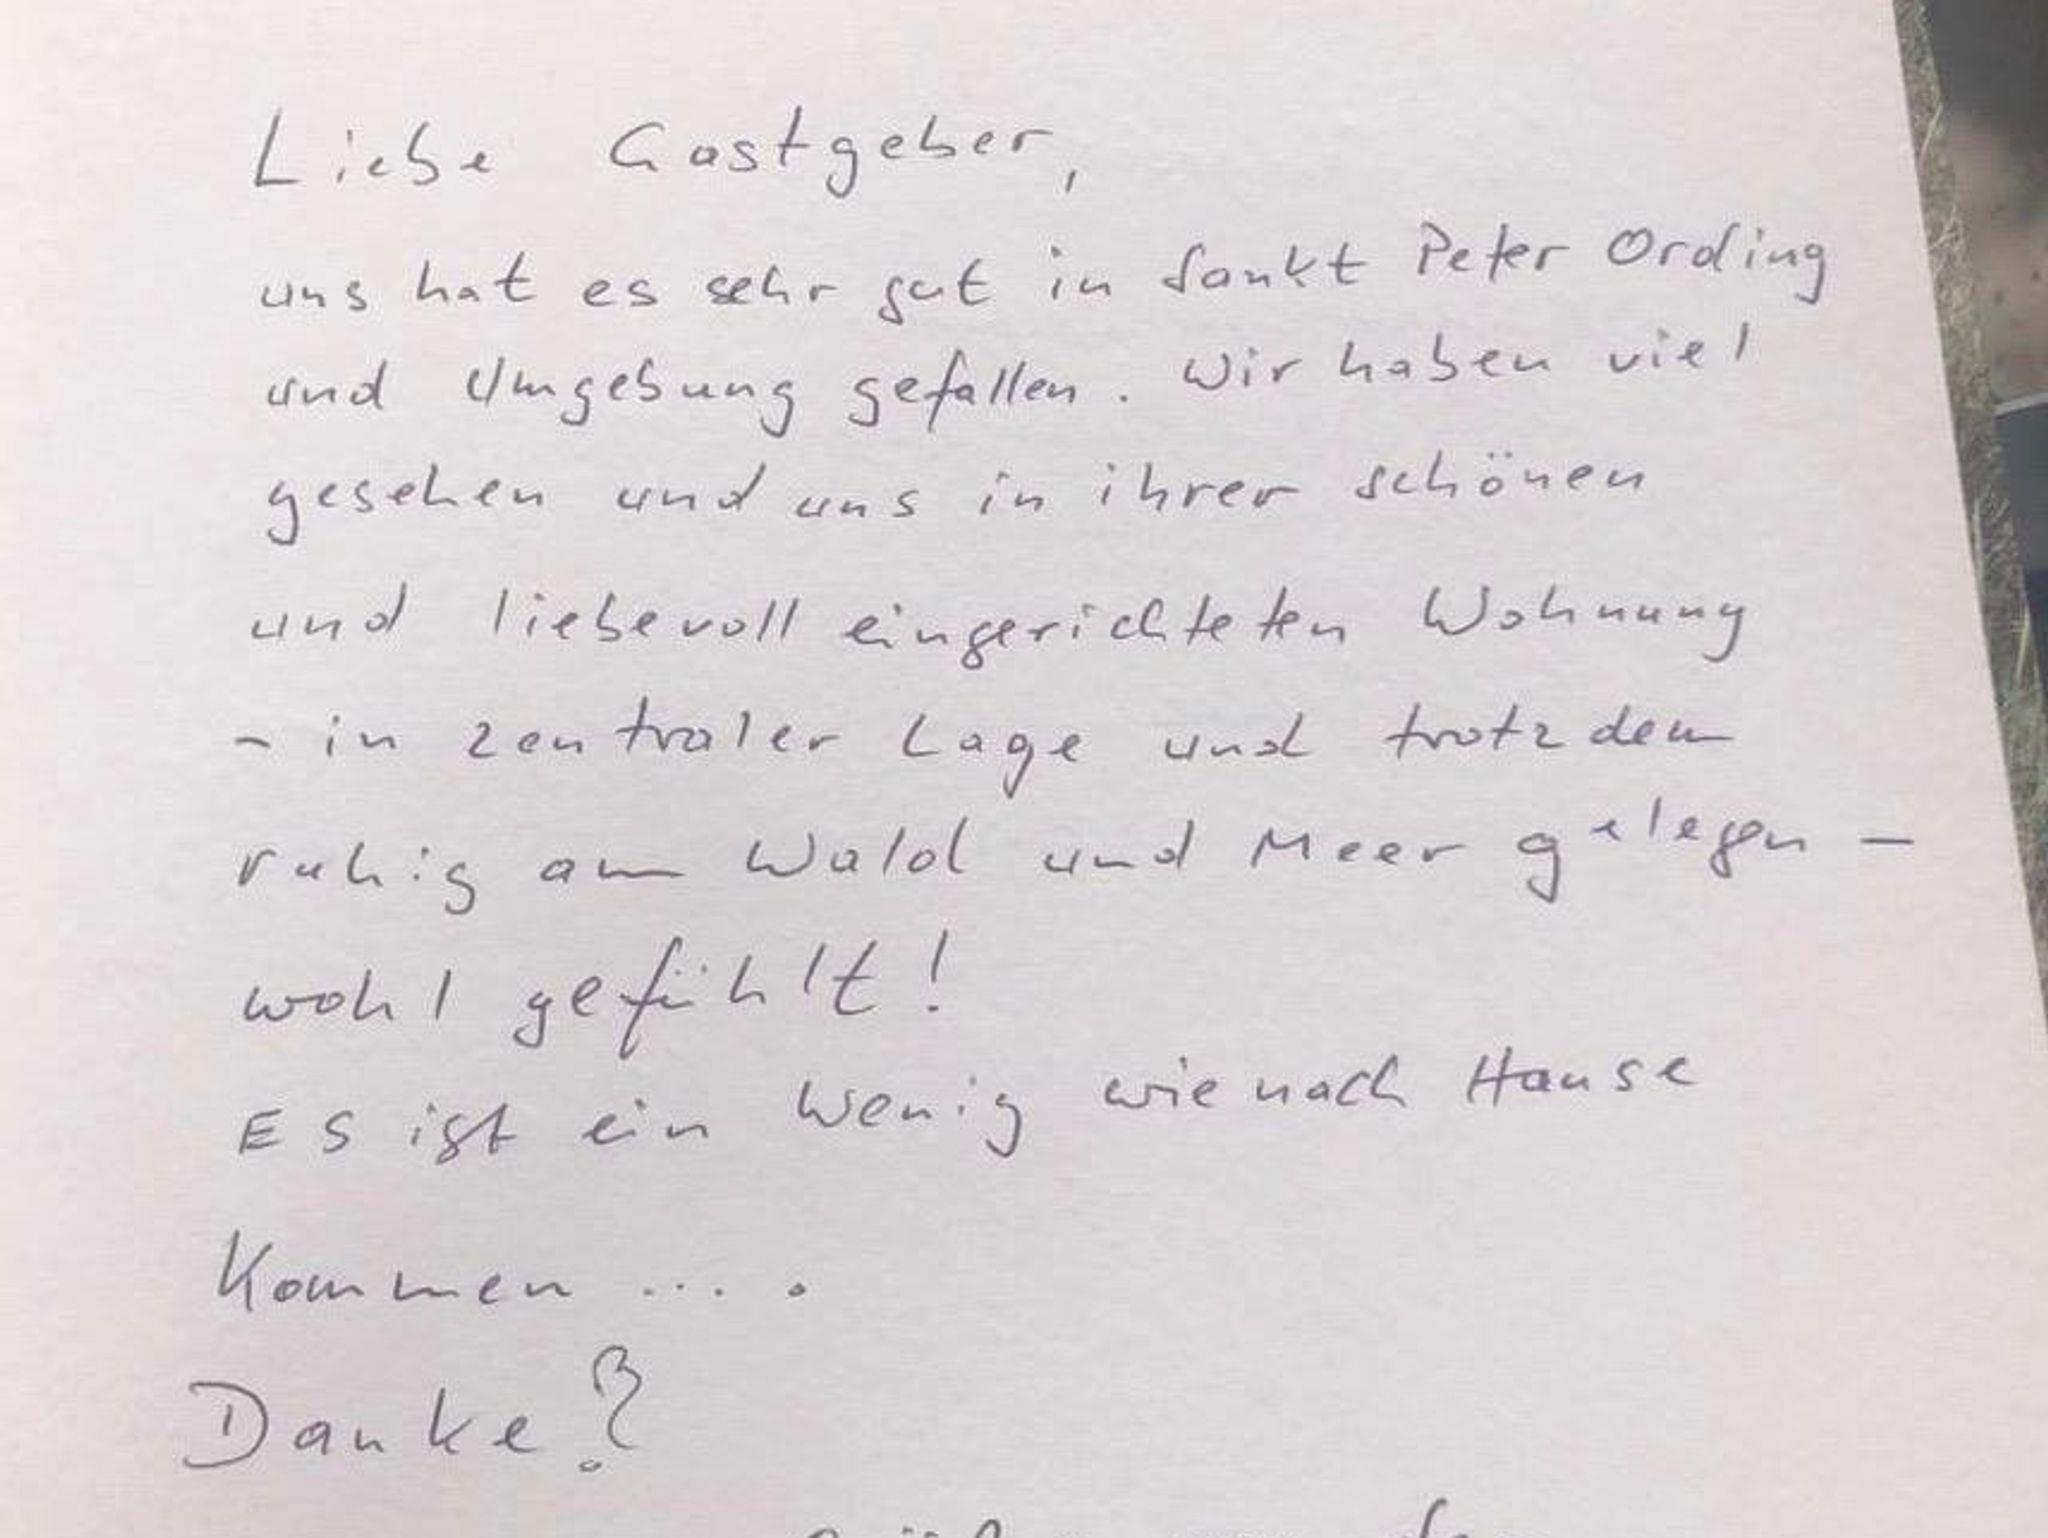 Liebe Gastgeber,
uns hat es sehr gut in Sankt Peter Ording
und Umgebung gefallen. Wir haben viel
gesehen und uns in ihrer schönen
und liebevoll eingerichteten Wohnung
- in zentraler Lage und trotzdem
ruhig am Wald und Meer gelegen -
wohl gefühlt!
Es ist ein wenig wie nach Hause
Kommen ....
Danke!